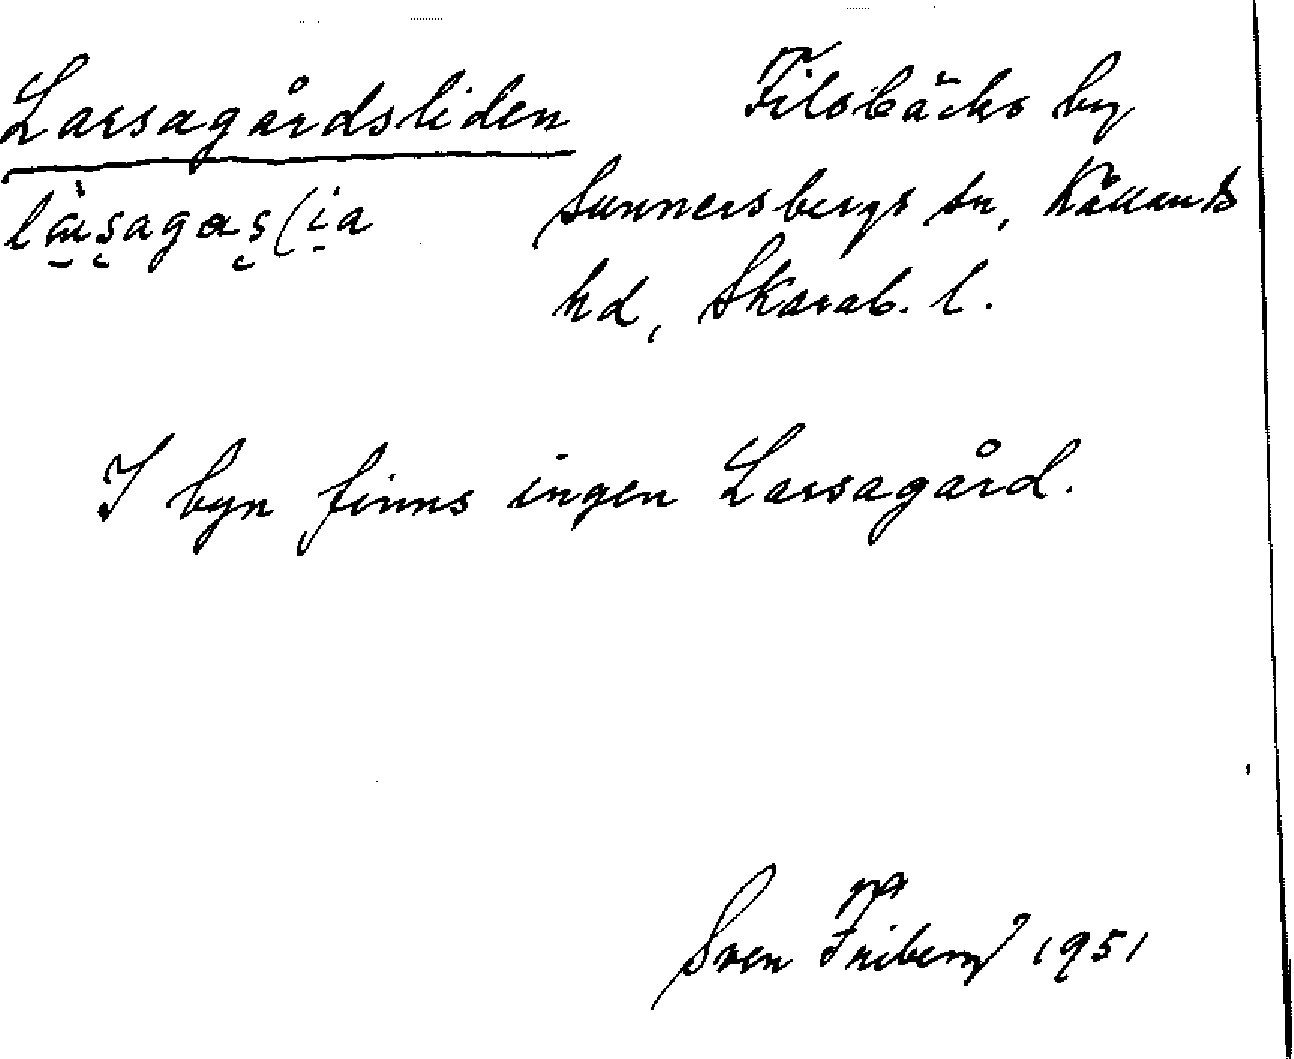 Larsagårdsliden
Filsbäcks by
Sunnersbergs sn, Kållands
hd, Skarab. l.
I byn finns ingen Larsagård.
Sven Friberg 1951